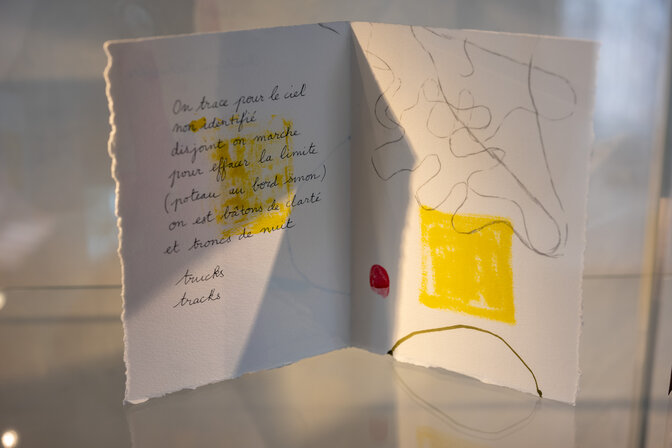 On trace pour le ciel
non identifié
disjoint on marche
pour effacer la limite
(poteau au bord sinon)
on est bâtons de clarté
et troncs de nuit
trucks
tracks